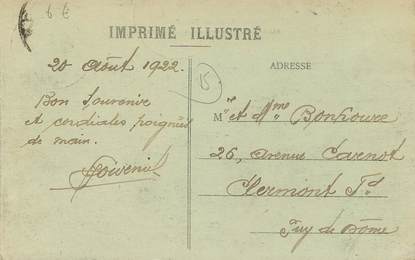 6 €
IMPRIMÉ ILLUSTRÉ
20 Août 1922.
15
ADRESSE
Bon Souvenir
et cordiales poignées
de main.
Mr et Mme Bonhoure
26, avenue Carnot
Clermont Fd
Puy de Dôme